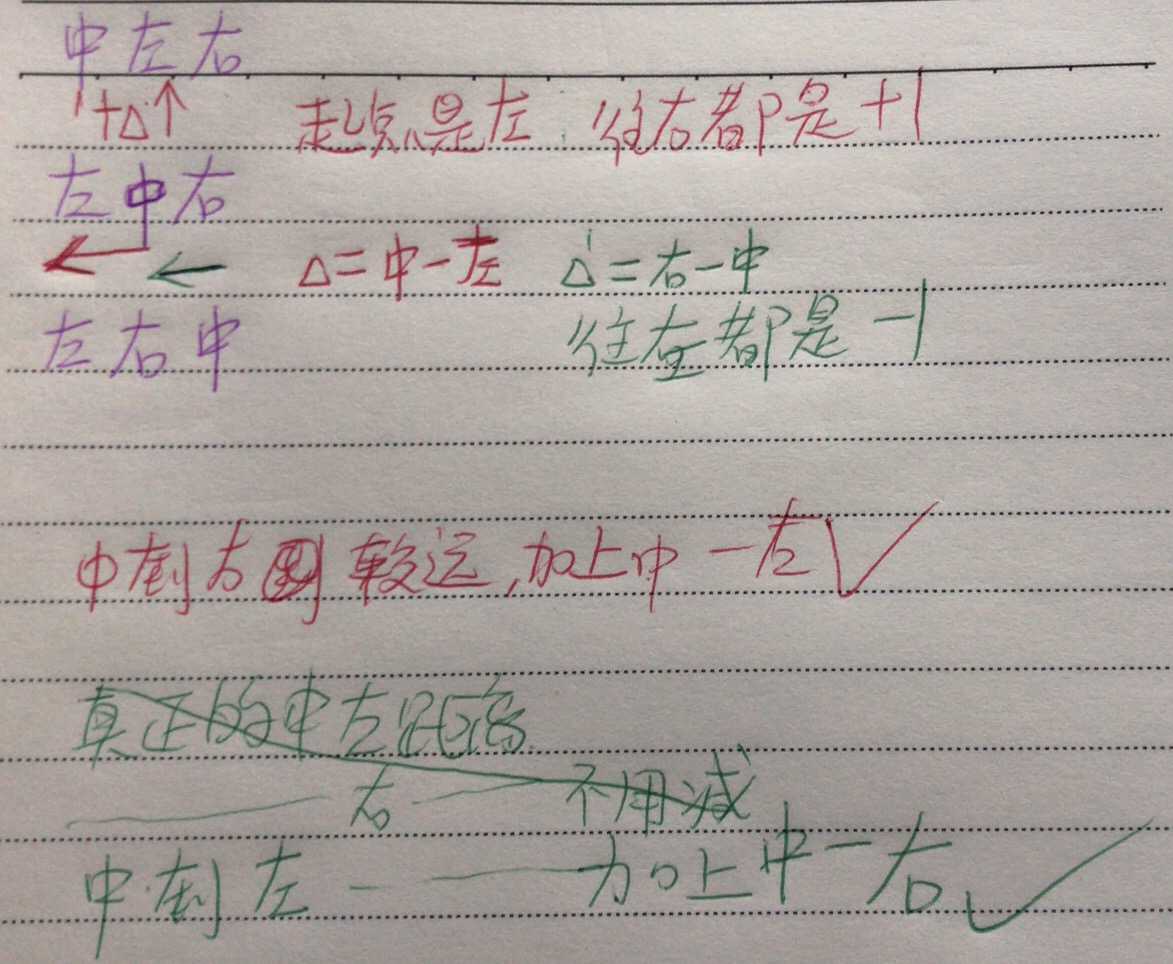 中左右
+△↑ 起点是左. 往右都是+1
左中右
← ← △=中-左 △'=右-中
左右中 往左都是-1
中到右 较远,加上中-左√
真正的中左距离
—— 右 —— 不用减
中到左 —— 加上中-右√